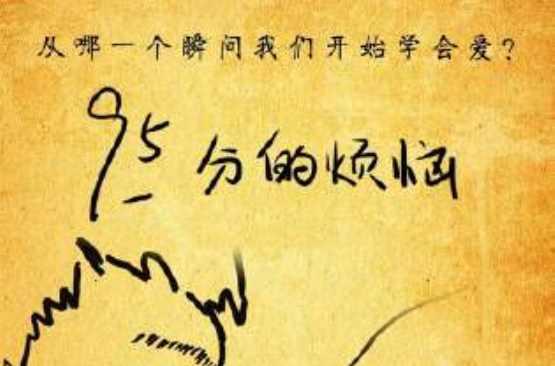 从哪一个瞬间我们开始学会爱？
95分的烦恼